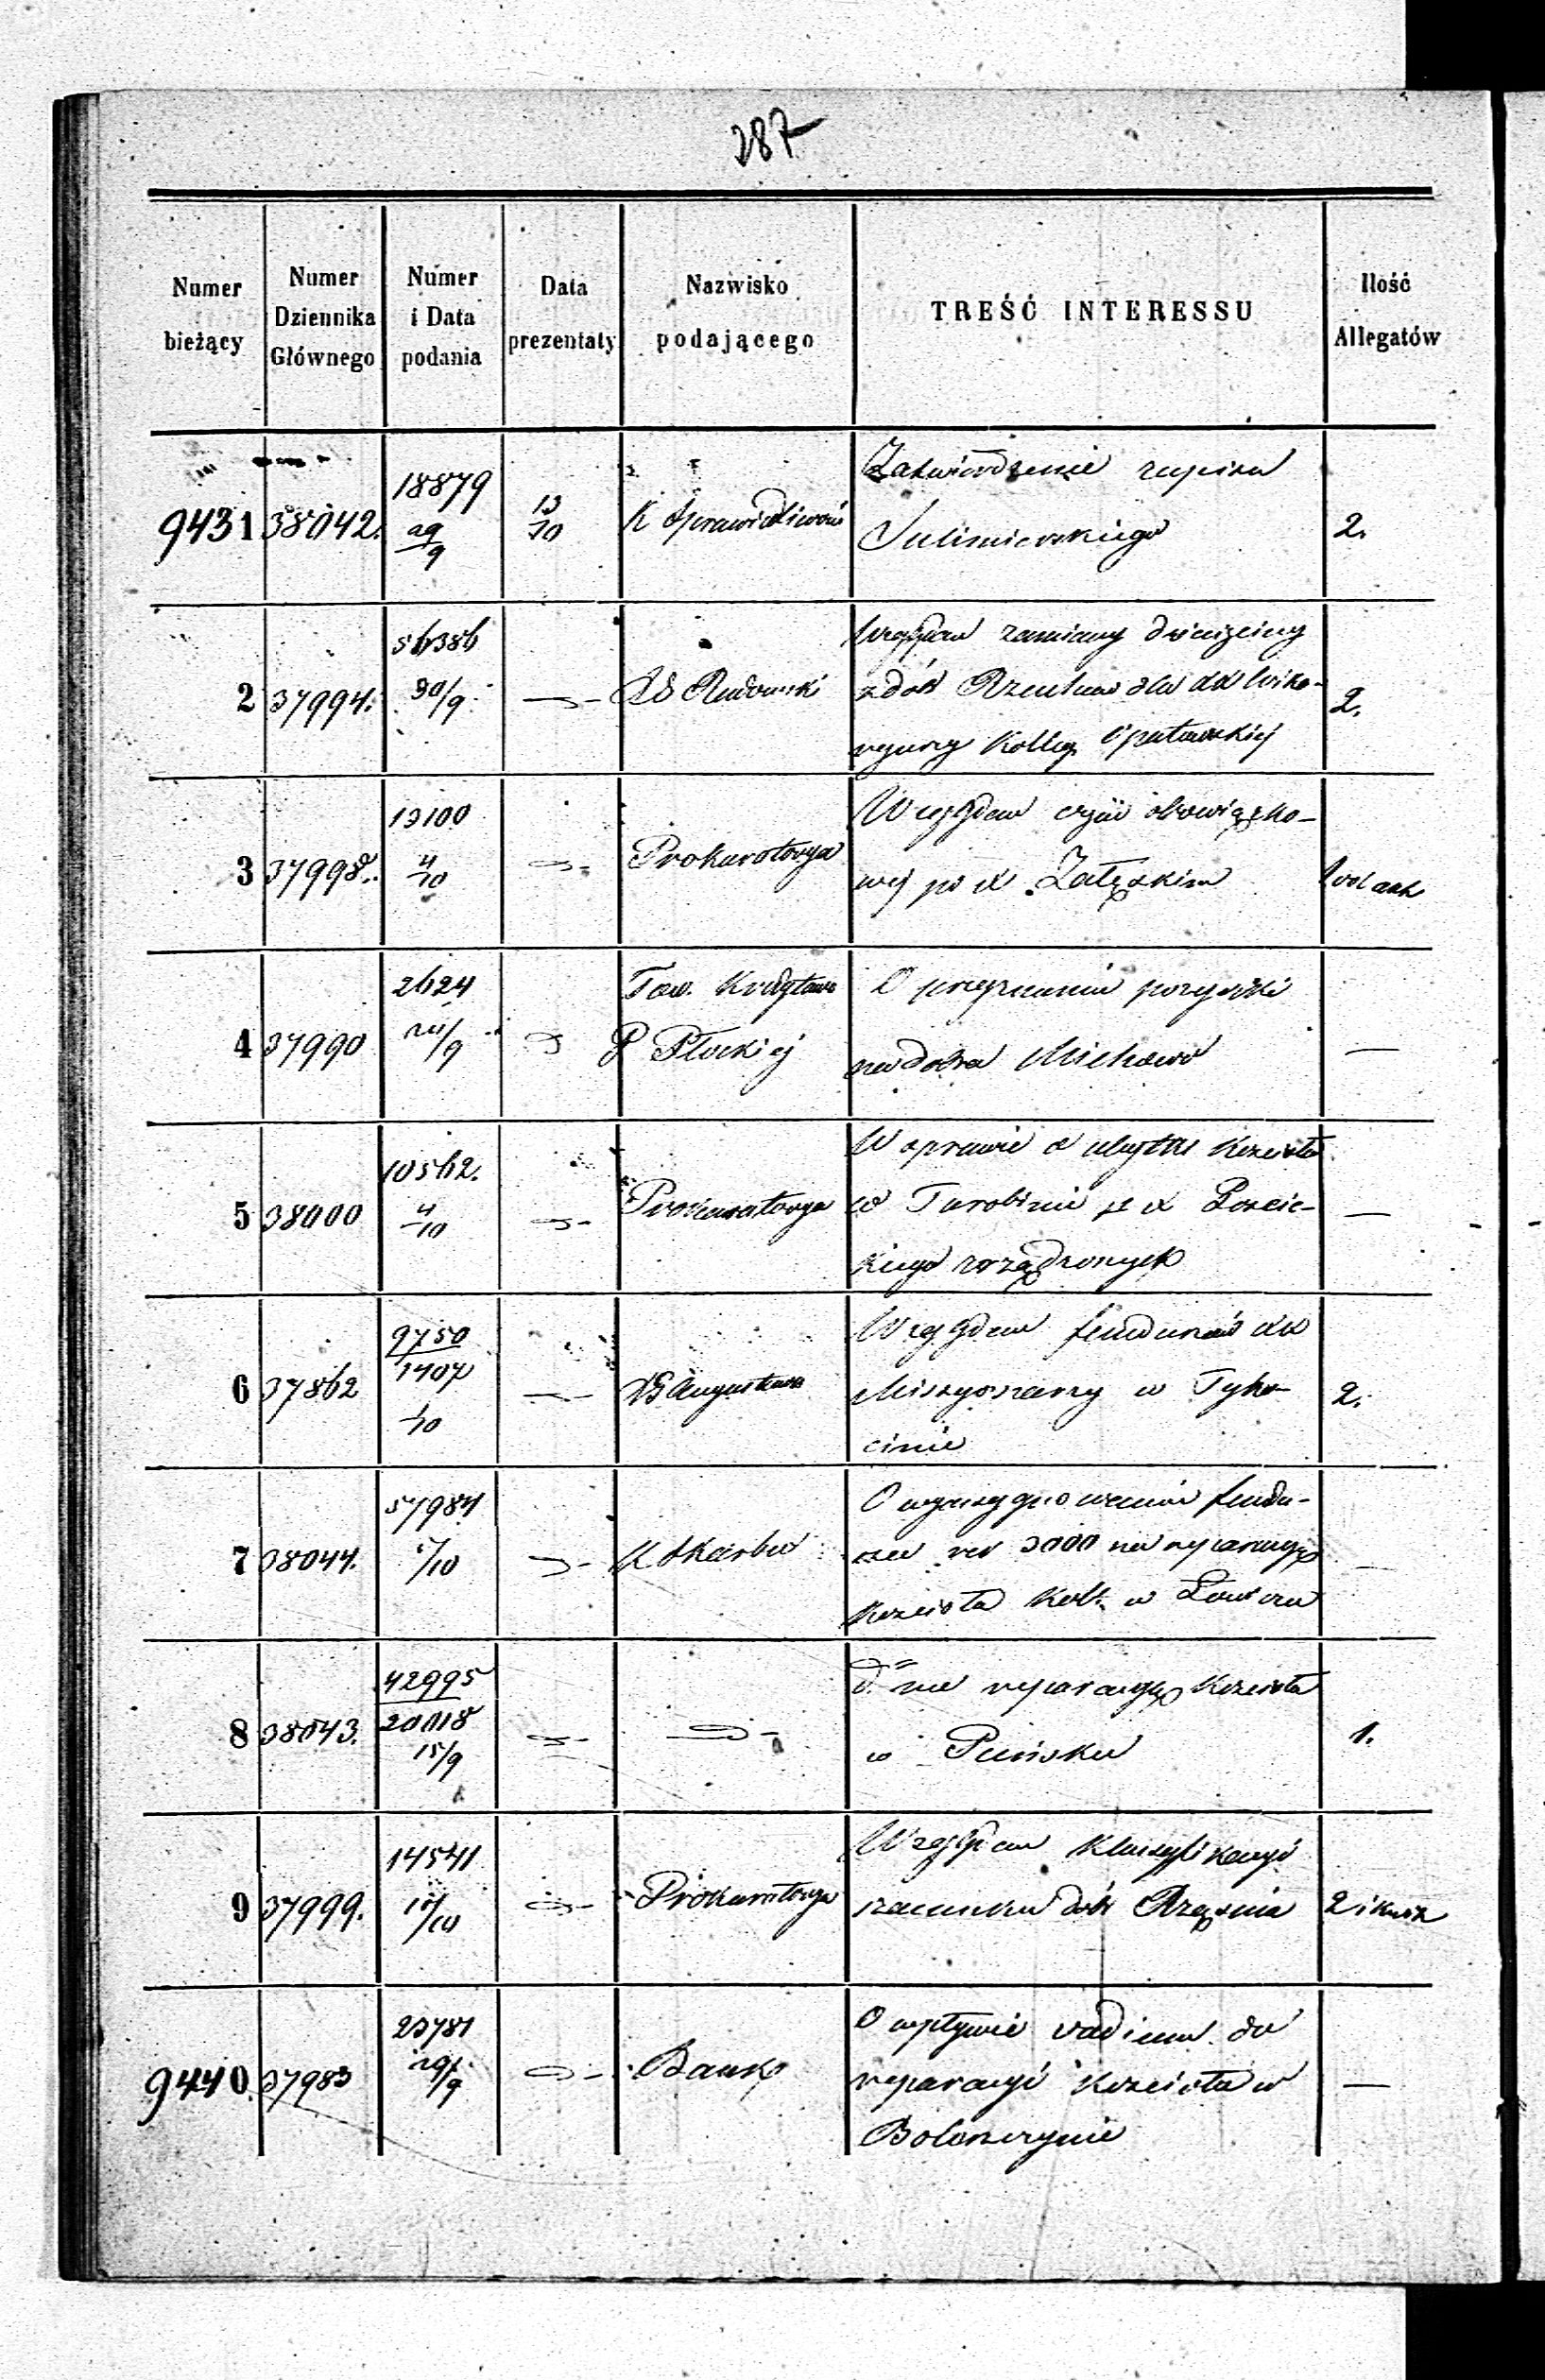 287
Numer bieżący
Numer Dziennika Głównego
Numer i Data podania
Data prezentaty
Nazwisko podającego
TREŚĆ INTERESSU
Ilość Allegatów
9431 38042. 18879 29/9 13/10 K Sprawiedliwości
Zatwierdzenie zapisu
Sulimierskiego
2.
2 37994. 56386 30/9 RG Radomski
Względem zamiany dziesięciny
z dóbr dla XX Wika-
ryuszy Kolleg. Opatowskiej
2.
3 37998. 13100 4/10 Prokuratorya
Względem czyści obowiązko-
wej po X. Załęskim
4 37990 2624 Tow. Kredytowe
G Płockiej
O przyznaniu pożyczki
na dobra Michowo
—
5 38000 10562. 4/10 Prokuratorya
W sprawie o ubytki Kościoła
w Turobinie p X
rządzonych
—
6 37862 9750
1407
1/10 RG Augustowski
Względem funduszów XX
Missyonarzy w Tyko-
cinie
2.
7 38044. 57984 K Skarbu
O wyasygnowanie fundu-
szu rsr 3000 na reparacyę
Kościoła Koll. w Łowiczu
—
8 38043. 42995
20018
15/9
dº na reparacyę Kościoła
w Puńsku
1.
9 37999. 14541 Prokuratorya
Względem Klassyfikacyi
szacunku dóbr Rzążnia
2
9440. 37983 23781 29/9 Bank
O wpływie vadium do
reparacyi Kościoła w
—